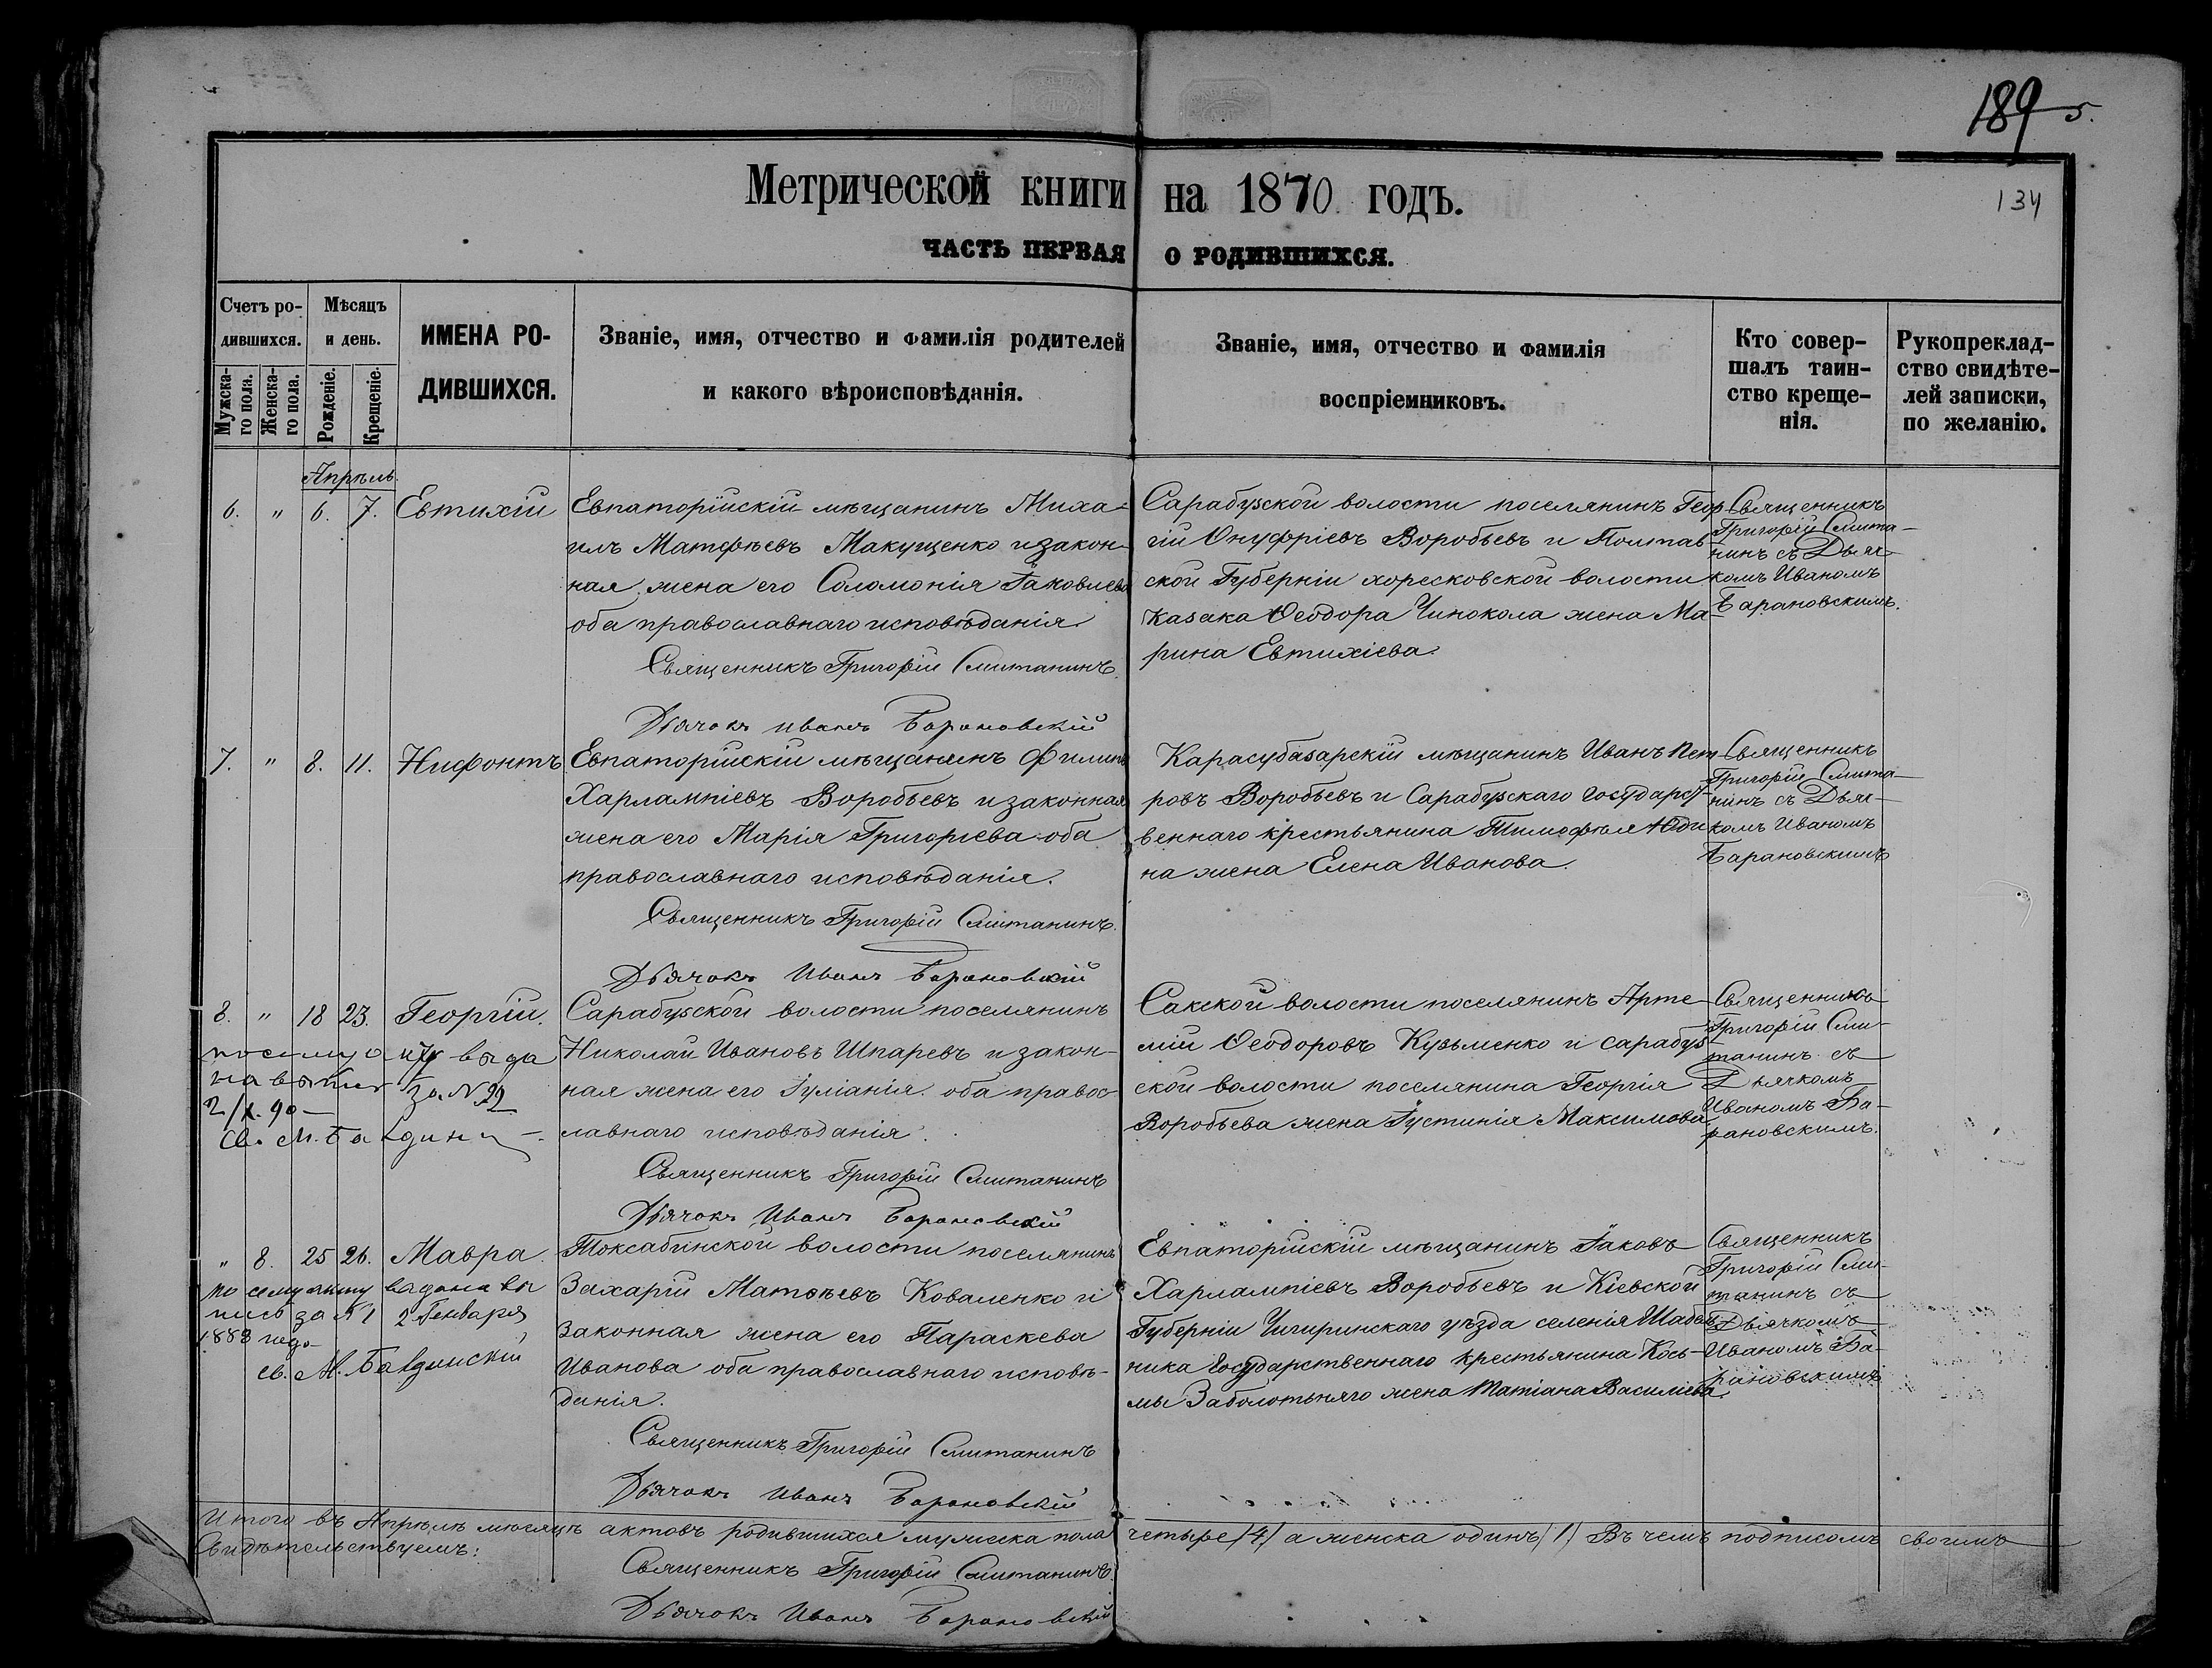 189 5.
134
Метрической книги на 1870 годъ.
ЧАСТЬ ПЕРВАЯ О РОДИВШИХСЯ.
Счетъ ро-
дившихся.
Мужска-
го пола.
Женска-
го пола.
Мѣсяцъ
и день.
Рожденіе.
Крещеніе.
ИМЕНА РО-
ДИВШИХСЯ.
Званіе, имя, отчество и фамилія родителей
и какого вѣроисповѣданія.
Званіе, имя, отчество и фамилія
воспріемниковъ.
Кто совер-
шалъ таин-
ство креще-
нія.
Рукопреклад-
ство свидѣте-
лей записки,
по желанію.
Апрѣль.
6. " 6. 7. Евтихій
Евпаторійскій мѣщанинъ Миха-
илъ Матфѣевъ Макущенко и закон-
ная жена его Соломонія Іаковлева
оба православнаго исповѣданія
Священникъ Григорій Смитанинъ.
Дьячокъ Иванъ Барановскій
Сарабузской волости поселянинъ Геор
гій Онуфріевъ Воробьевъ и Полтав-
ской Губерніи хоресковской волости
казака Ѳеодора Чинокола жена Ма-
рина Евтихіева.
Священникъ
Григорій Смита-
нинъ съ Дьяч-
комъ Иваномъ
Барановскимъ.
7. " 8. 11. Нифонтъ
Евпаторійскій мѣщанинъ Филипъ
Харлампіевъ Воробьевъ и законная
жена его Марія Григорьева оба
православнаго исповѣданія.
Священникъ Григорій Смитанинъ.
Дьячокъ Иванъ Барановскій
Карасубазарскій мѣщанинъ Иванъ Пет
ровъ Воробьевъ и Сарабузскаго государст-
веннаго крестьянина Тимофея Юди
на жена Елена Иванова.
Священникъ
Григорій Смита-
нинъ съ Дьяч-
комъ Иваномъ
Барановскимъ
8. " 18 23. Георгій.
Сарабузской волости поселянинъ
Николай Ивановъ Шпаревъ и закон-
ная жена его Іуліанія оба правос-
лавнаго исповѣданія.
Священникъ Григорій Смитанинъ
Дьячокъ Иванъ Барановскій
Сакской волости поселянинъ Арте-
мій Ѳеодоровъ Кузьменко и сарабуз
ской волости поселянина Георгія
Воробьева жена Іустинія Максимова
Священникъ
Григорій Сми-
танинъ съ
Дьячкомъ
Иваномъ Ба-
рановскимъ.
за № 22
2/X. 90
Св. М.
" 8. 25 26. Мавра.
Токсабинской волости поселянинъ
Захарій Матѳѣевъ Коваленко и
законная жена его Параскева
Иванова оба православнаго исповѣ-
данія.
Священникъ Григорій Смитанинъ
Дьячокъ Иванъ Барановскій
Евпаторійскій мѣщанинъ Іаковъ
Харлампіевъ Воробьевъ и Кіевской
Губерніи Чигиринскаго уѣзда селенія Шабель
ника Государственнаго крестьянина Кось-
мы Заболотьняго жена Татіана Василіева.
Священникъ
Григорій Сми-
танинъ съ
Дьячкомъ
Иваномъ Ба-
рановскимъ
по сему акту выдана вы
пись за № 1 2 Генваря
1883 года
св. М.
Итого въ Апрѣлѣ мѣсяцѣ актовъ родившихся мужеска пола четыре /4/ а женска одинъ /1/ Въ чемъ подписомъ своимъ
Свидѣтельствуемъ:
Священникъ Григорій Смитанинъ.
Дьячокъ Иванъ Барановскій